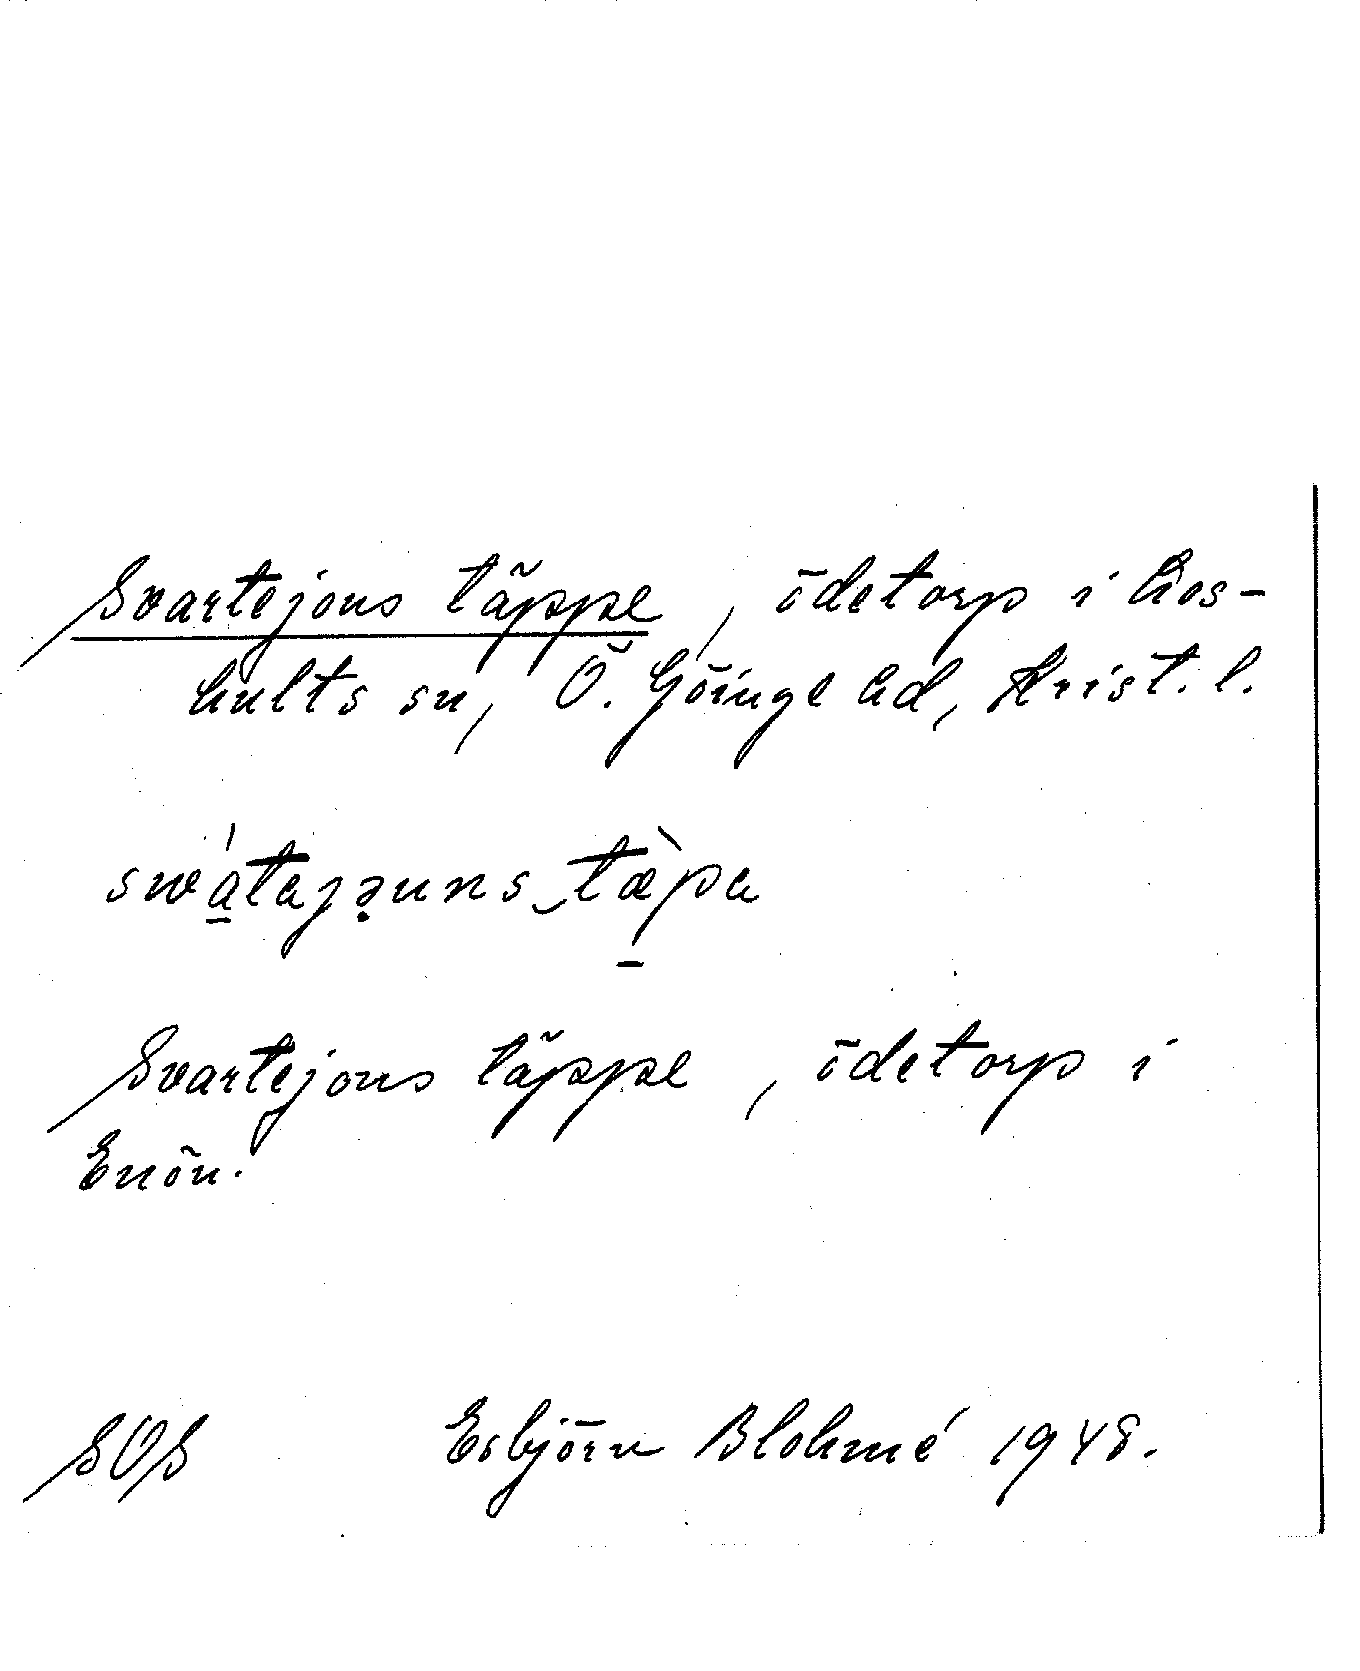 Svartejons täppe, ödetorp i Hos-
hults sn, Ö. Göinge hd, Krist. l.
swátajəuns tæ̀pa
Svartejons täppe, ödetorp i
Enön.
SOS Esbjörn Blohmé 1948.